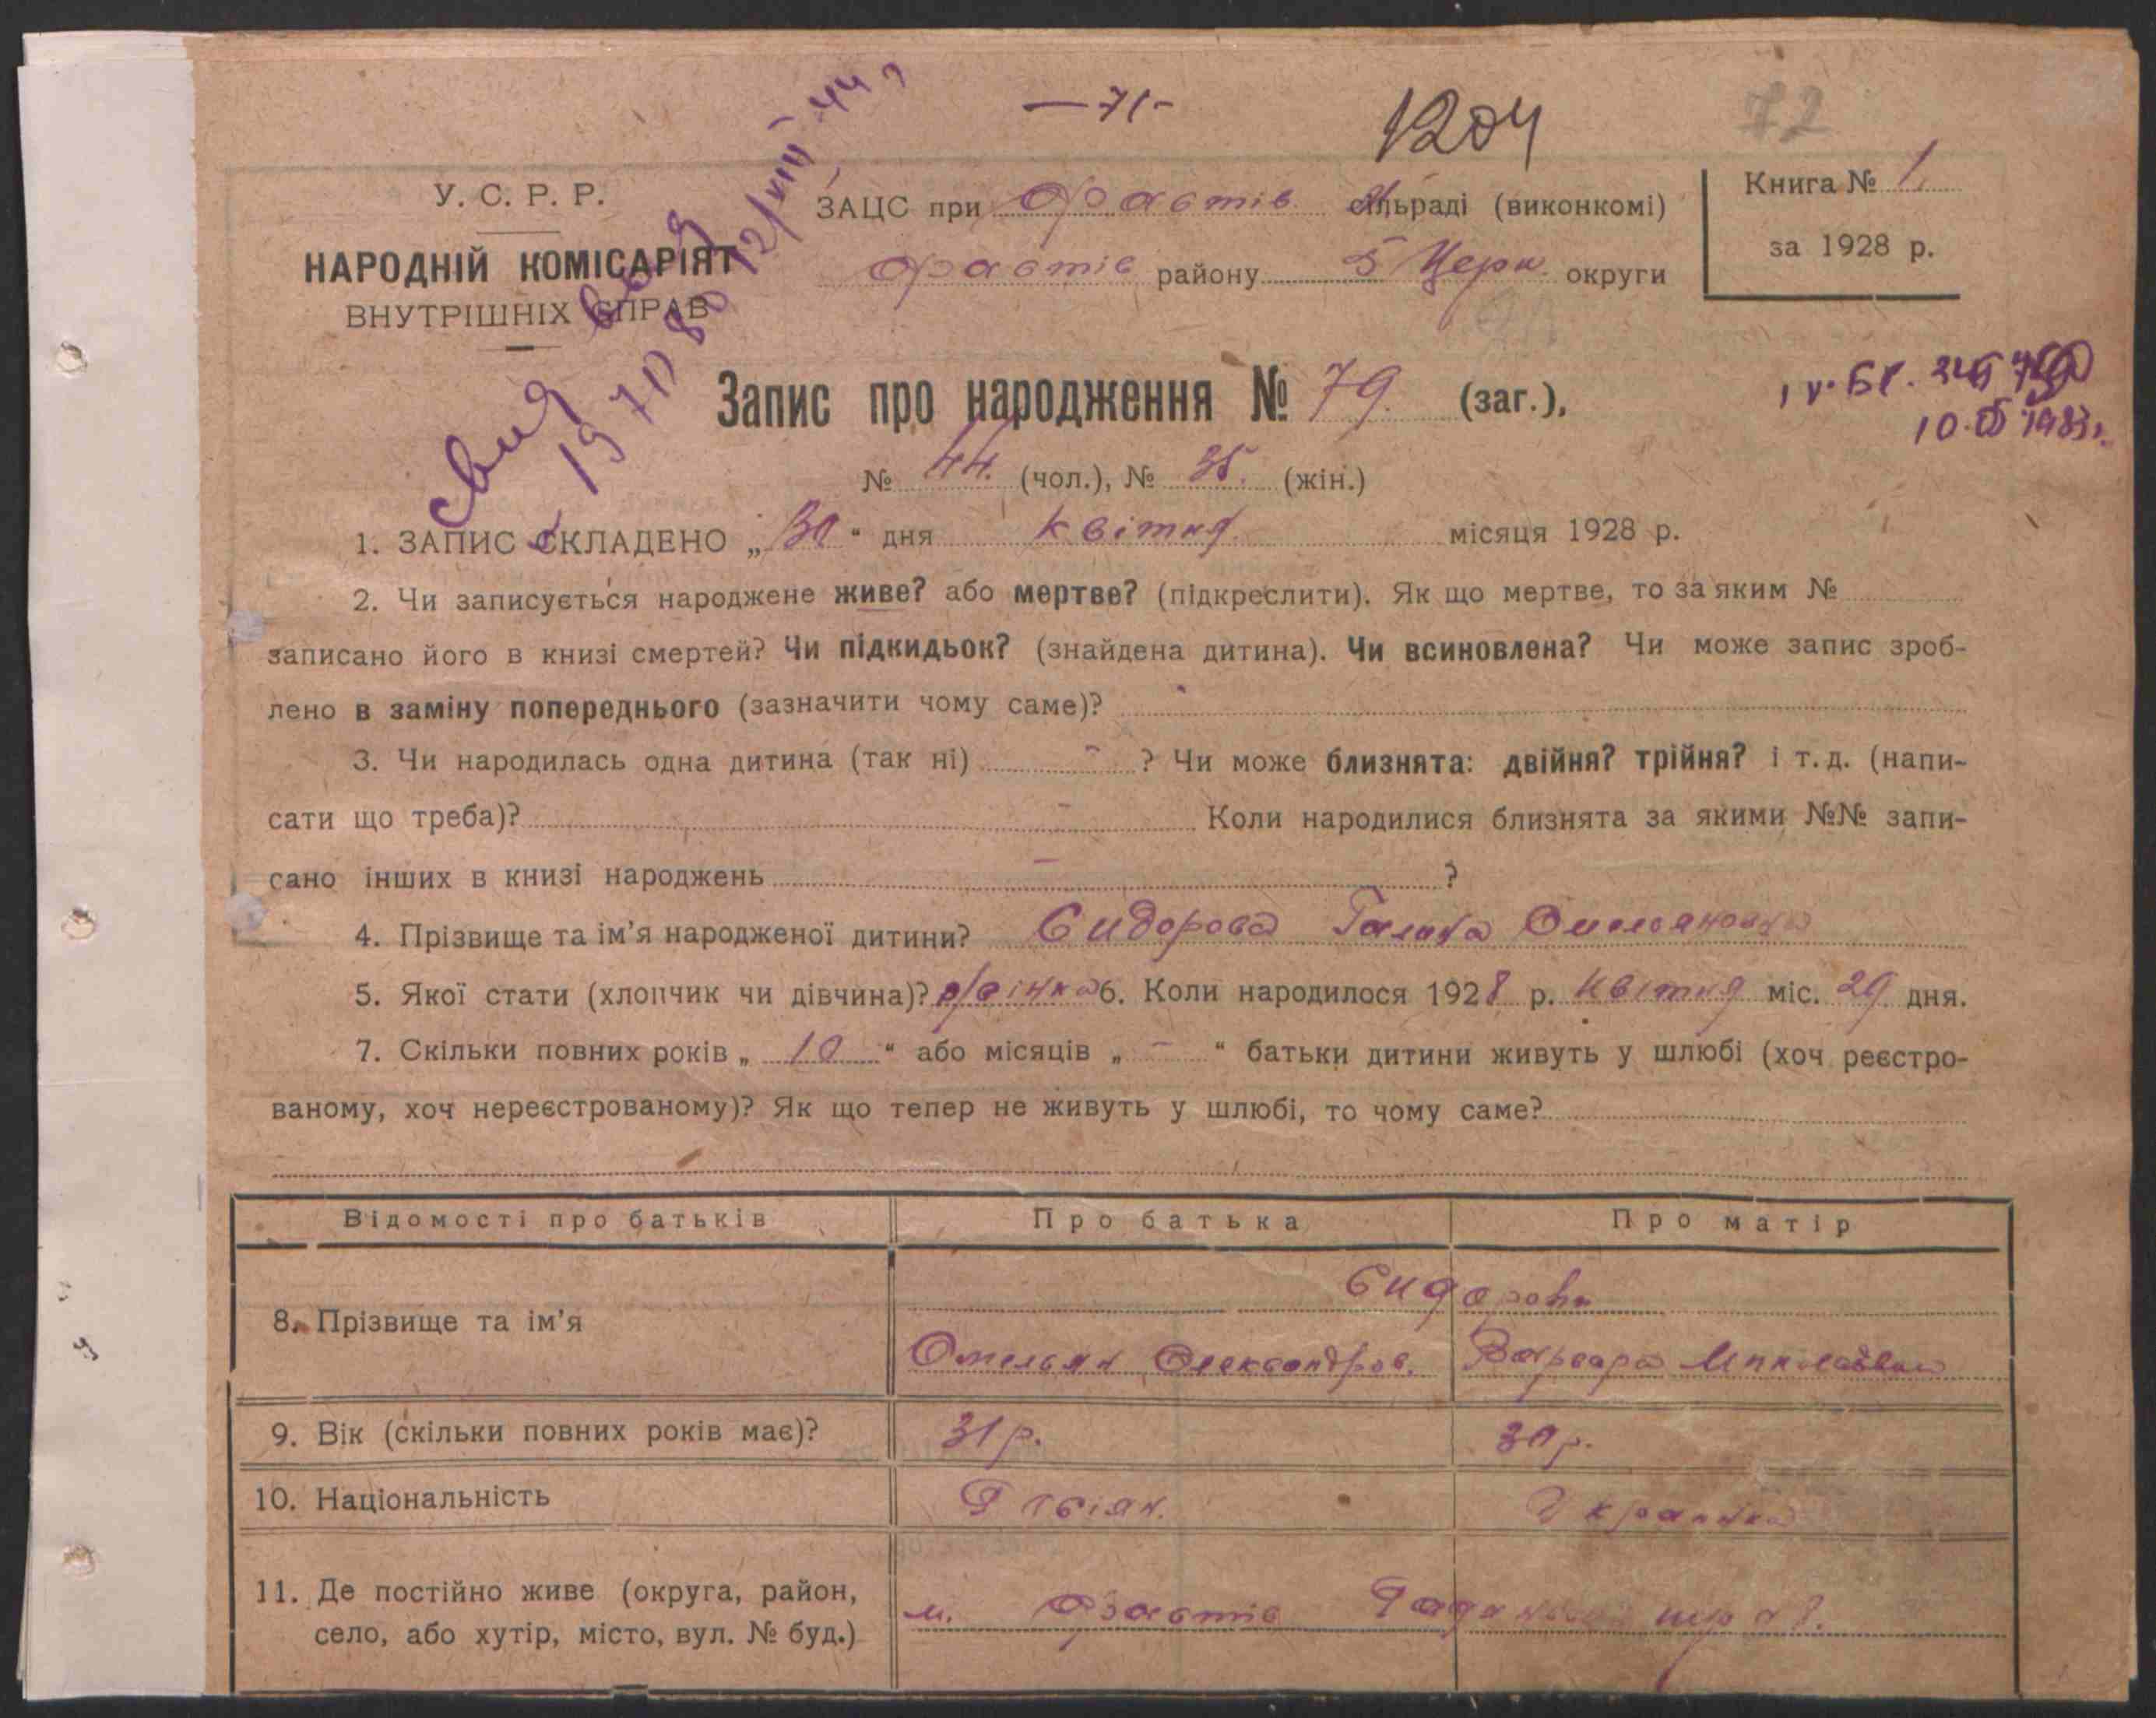 — 71 —
1204
72
У. С. Р. Р.
НАРОДНІЙ КОМІСАРІЯТ
ВНУТРІШНІХ СПРАВ
ЗАЦС при Фастів сільраді (виконкомі)
Фастів району Б Церк. округи
Книга № 1.
за 1928 р.
Запис про народження № 79. (заг.),
№ 44. (чол.), № 35. (жін.)
1. ЗАПИС СКЛАДЕНО „30“ дня квітня. місяця 1928 р.
2. Чи записується народжене живе? або мертве? (підкреслити). Як що мертве, то за яким №
записано його в книзі смертей? Чи підкидьок? (знайдена дитина). Чи всиновлена? Чи може запис зроб-
лено в заміну попереднього (зазначити чому саме)?
3. Чи народилась одна дитина (так ні) - ? Чи може близнята: двійня? трійня? і т. д. (напи-
сати що треба)? - Коли народилися близнята за якими №№ запи-
сано інших в книзі народжень - ?
4. Прізвище та ім'я народженої дитини? Сидорова Галина Омеляновна
5. Якої стати (хлопчик чи дівчина)? жінка 6. Коли народилося 1928 р. квітня міс. 29 дня.
7. Скільки повних років „ 10 “ або місяців „ - “ батьки дитини живуть у шлюбі (хоч реєстро-
ваному, хоч нереєстрованому)? Як що тепер не живуть у шлюбі, то чому саме?
Відомості про батьків Про батька Про матір
8. Прізвище та ім'я
Сидорови
Омельян Олександров. Варвара Миколаївна
9. Вік (скільки повних років має)? 31 р. 30 р.
10. Національність Росіян. Українка
11. Де постійно живе (округа, район,
село, або хутір, місто, вул. № буд.)
м. Фастів